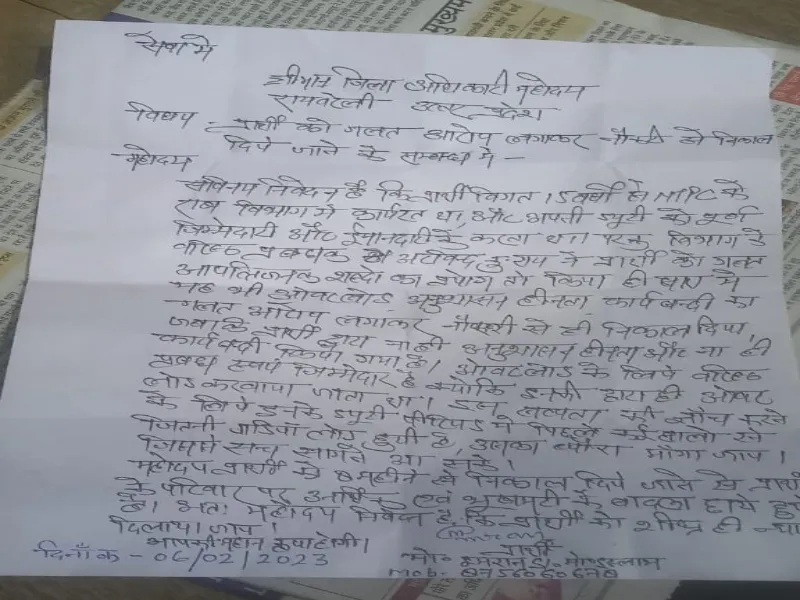 सेवा मे
श्रीमान जिला अधिकारी महोदय
रायबरेली उत्तर प्रदेश
विषय - प्रार्थी को गलत आरोप लगाकर नौकरी से निकाल
दिये जाने के सम्बन्ध मे -
महोदय
सविनय निवेदन है कि प्रार्थी विगत 15 वर्षो से NTPC के
राख विभाग मे कार्यरत था, और अपनी ड्यूटी को पूर्ण
जिम्मेदारी और ईमानदारी से करता था। परन्तु विभाग के
वरिष्ठ प्रबन्धक ने प्रार्थी को गलत
आपत्तिजनक शब्दो का प्रयोग तो किया ही साथ मे
यह भी ओवरलोड अनुशासन हीनता कार्य बन्दी का
गलत आरोप लगाकर नौकरी से ही निकाल दिया,
जबकि प्रार्थी द्वारा ना ही अनुशासन हीनता और ना ही
कार्य बन्दी किया गया है। ओवरलोड के लिये वरिष्ठ
प्रबन्धक स्वयं जिम्मेदार है क्योकि इनके द्वारा ही ओवर
लोड करवाया जाता था। इस सत्यता की जाँच करने
के लिये इनके ड्यूटी पीरियड मे पिछले कई सालो से
जितनी गाडिया लोड हुयी है, उसका ब्यौरा मांगा जाय।
जिससे सच सामने आ सके।
महोदय प्रार्थी को महीने से निकाल दिये जाने से प्रार्थी
के परिवार पर एवं भुखमरी के बादल छाये हुये
है। अतः महोदय निवेदन है कि प्रार्थी को शीघ्र ही न्या
दिलाया जाय।
आपकी महान कृपा होगी।
प्रार्थी
दिनाँक - 06/02/2023
मो० इमरान S/o मो० इस्लाम
Mob - 8756060678